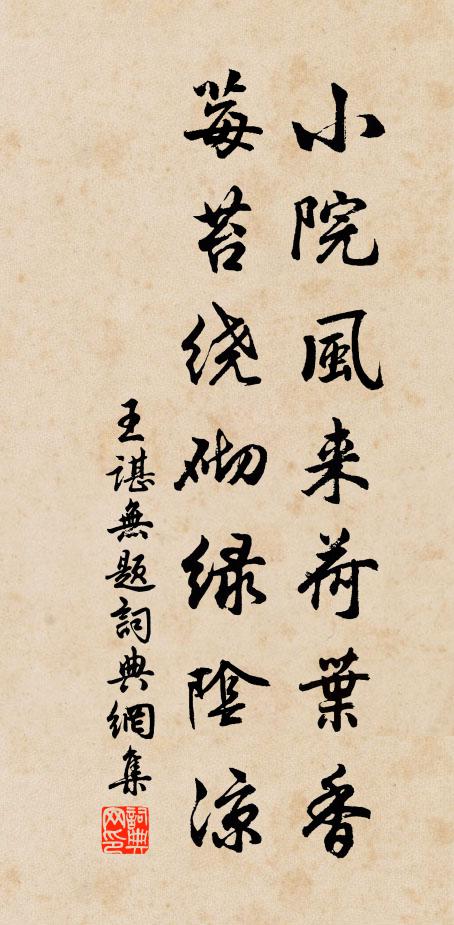 小院風来荷葉香
莓苔绕砌绿陰凉
王谌無题詞典網集
詞典网印